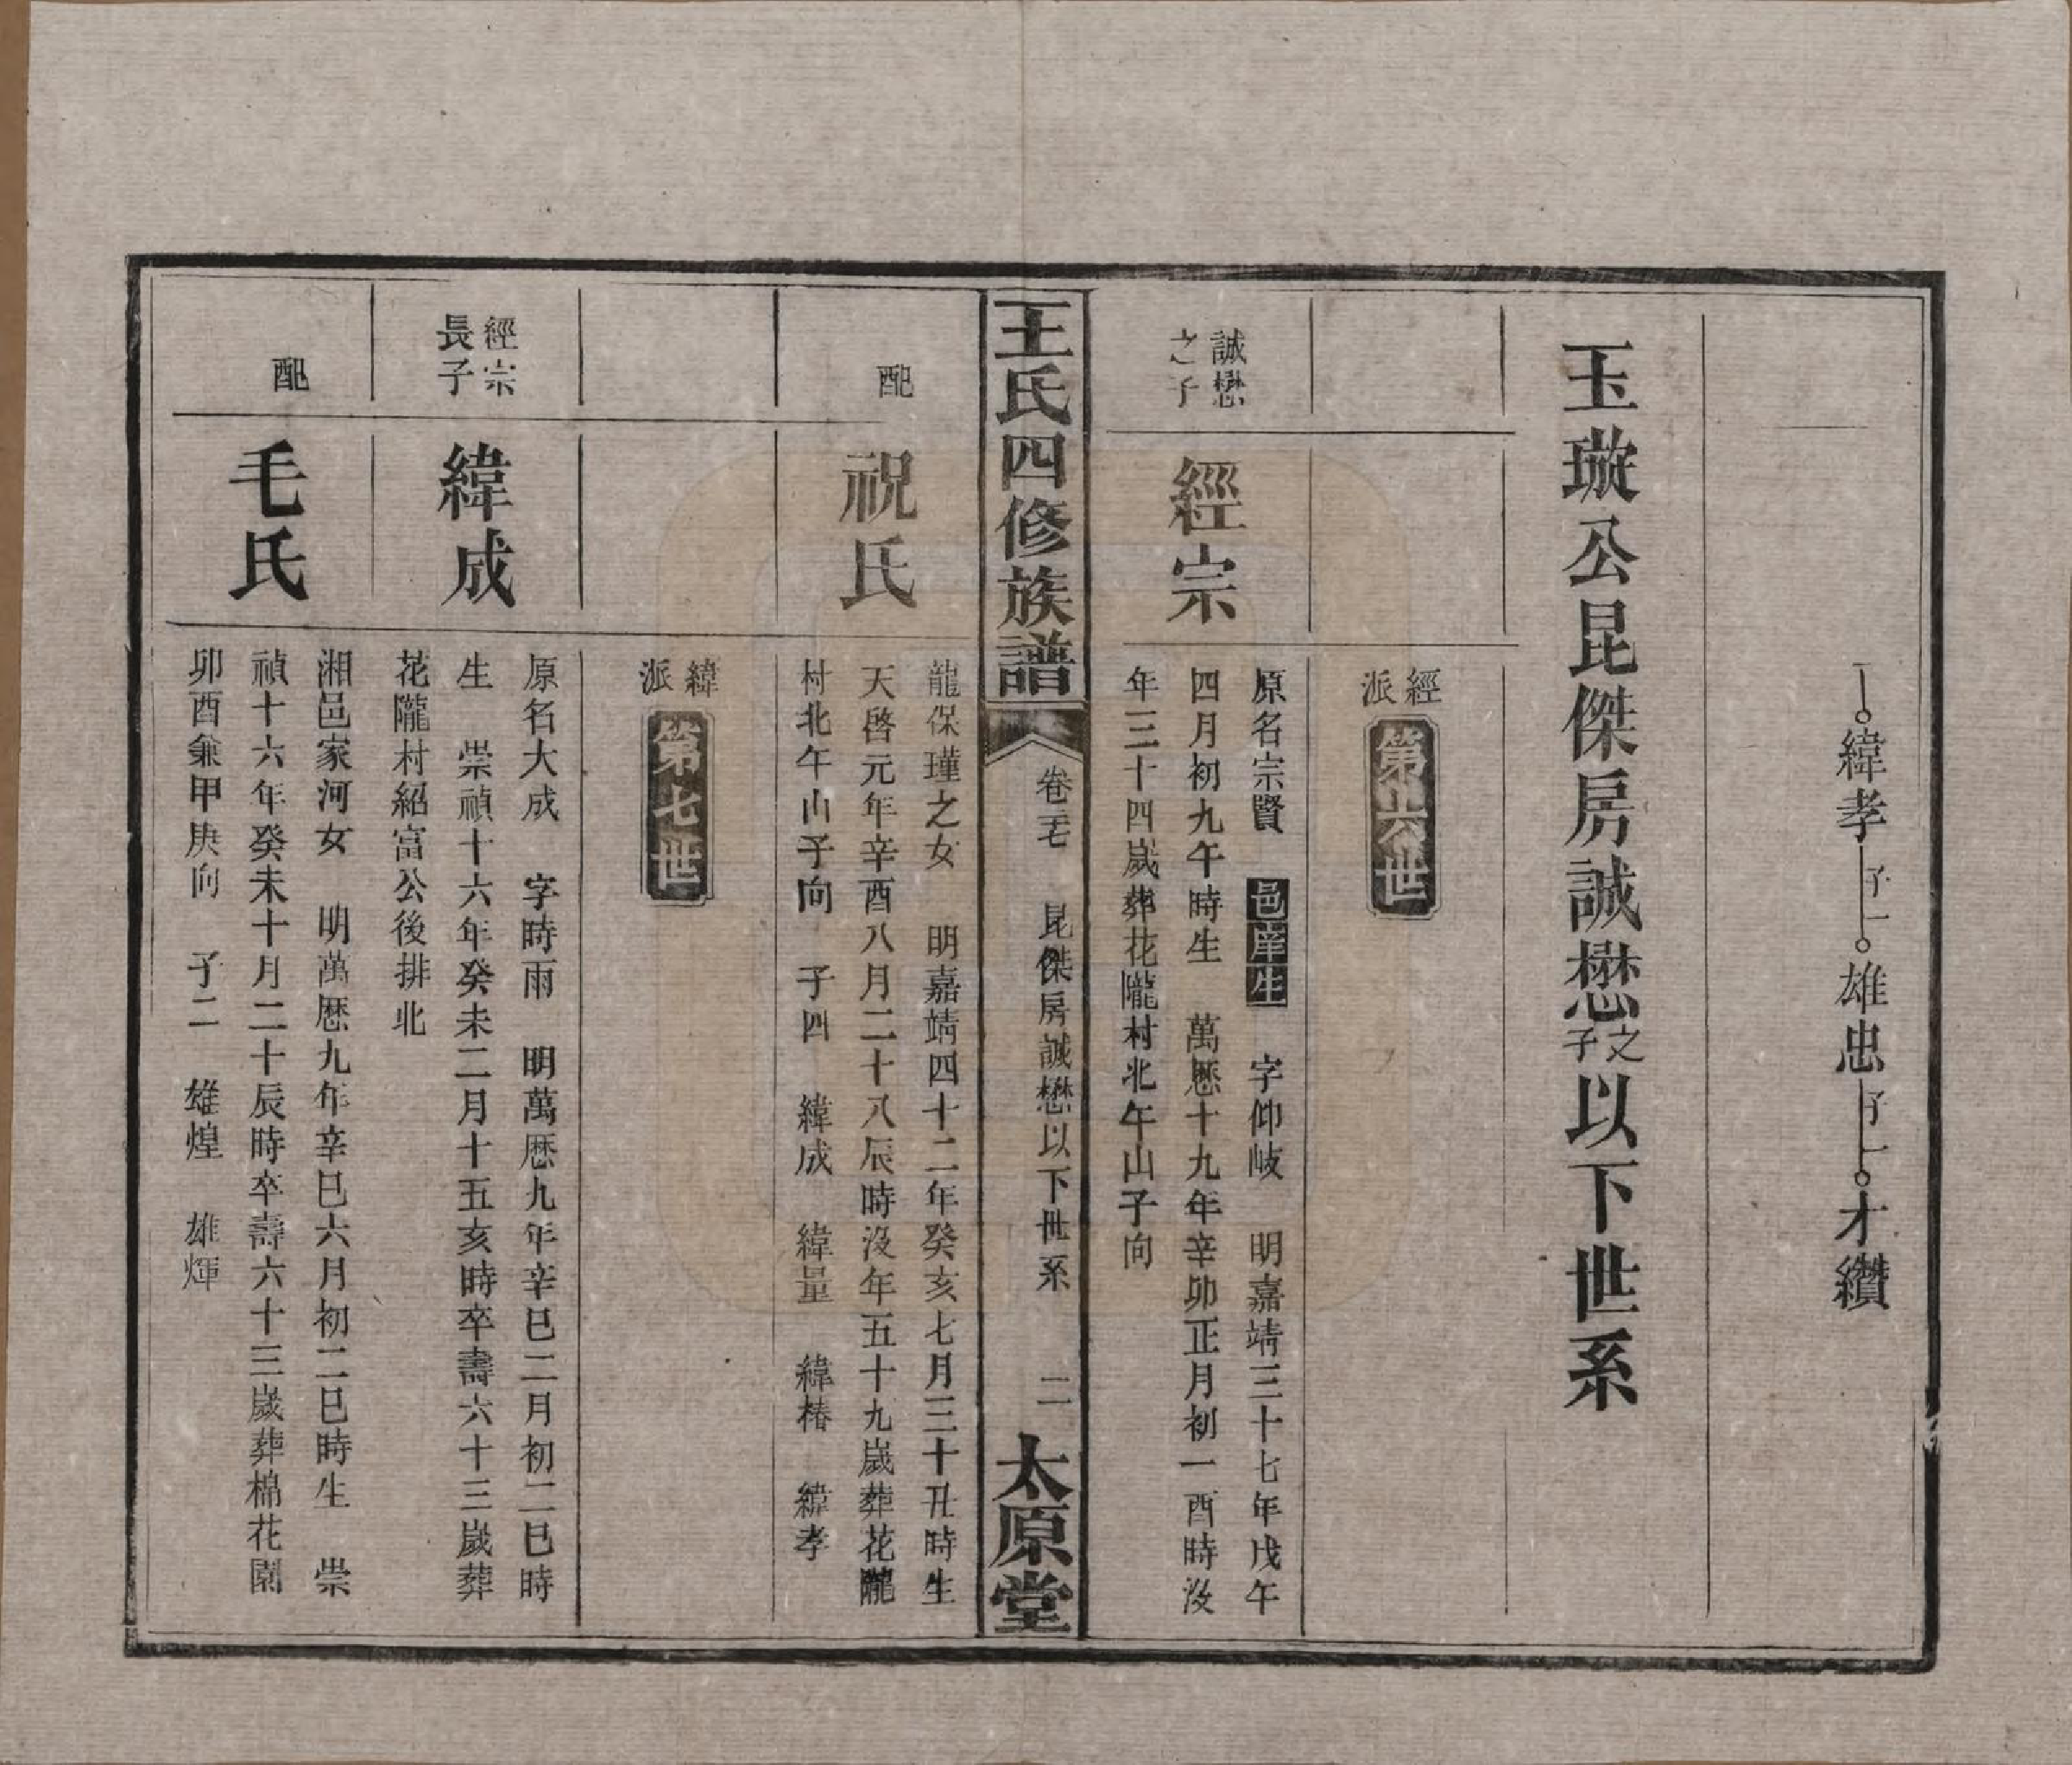 緯孝 子一 雄忠 子一 才纘
玉璇公昆傑房誠懋之子以下世系
經派 第六世
誠懋之子
經宗
原名宗賢 邑庠生 字仰岐 明嘉靖三十七年戊午
四月初九午時生 萬歷十九年辛卯正月初一酉時沒
年三十四歲葬花隴村北午山子向
王氏四修族譜
卷二七 昆傑房誠懋以下世系 二
太原堂
配
祝氏
龍保瑾之女 明嘉靖四十二年癸亥七月三十丑時生
天啓元年辛酉八月二十八辰時沒年五十九歲葬花隴
村北午山子向 子四 緯成 緯量 緯椿 緯孝
緯派 第七世
經宗長子
緯成
原名大成 字時雨 明萬歷九年辛巳二月初二巳時
生 崇禎十六年癸未二月十五亥時卒壽六十三歲葬
花隴村紹富公後排北
配
毛氏
湘邑家河女 明萬歷九年辛巳六月初二巳時生 崇
禎十六年癸未十月二十辰時卒壽六十三歲葬棉花園
卯酉兼甲庚向 子二 雄煌 雄輝